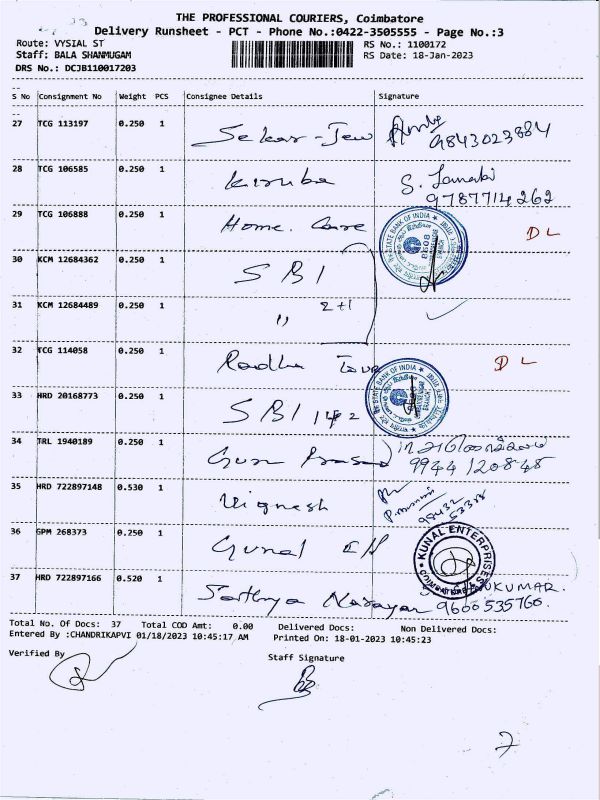 THE PROFESSIONAL COURIERS, Coimbatore
Delivery Runsheet - PCT - Phone No.:0422-3505555 - Page No.:3
Route: VYSIAL ST
RS No.: 1100172
Staff: BALA SHANMUGAM
RS Date: 18-Jan-2023
DRS No.: DCJB110017203
S No Consignment No Weight PCS Consignee Details Signature
27 TCG 113197 0.250 1 Sekar - Jew 9843023884
28 TCG 106585 0.250 1 Kiruba S. Janaki
9787714262
29 TCG 106888 0.250 1 Home. Care DL
STATE BANK OF INDIA
30 KCM 12684362 0.250 1 SBI
31 KCM 12684489 0.250 1 " 2+1
32 TCG 114058 0.250 1 Radha DL
STATE BANK OF INDIA
33 HRD 20168773 0.250 1 SBI 1+2
34 TRL 1940189 0.250 1 Guru Prasad
9944120848
35 HRD 722897148 0.530 1 Vignesh
98432
53328
36 GPM 268373 0.250 1 Gunal
KUNAL ENTERPRISES
37 HRD 722897166 0.520 1 Sathya Narayan 9600535766.
Total No. Of Docs: 37 Total COD Amt: 0.00 Delivered Docs: Non Delivered Docs:
Entered By :CHANDRIKAPVI 01/18/2023 10:45:17 AM Printed On: 18-01-2023 10:45:23
Verified By
Staff Signature
7